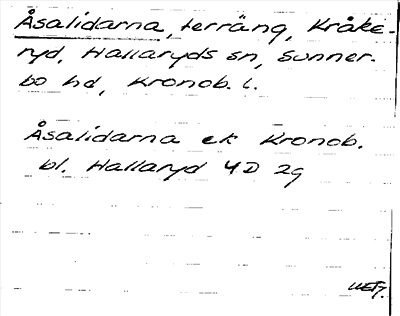 Åsalidarna, terräng, Kråke-
ryd, Hallaryds sn, Sunner-
bo hd, Kronob. l.
Åsalidarna ek Kronob.
bl. Hallaryd 4D 2g